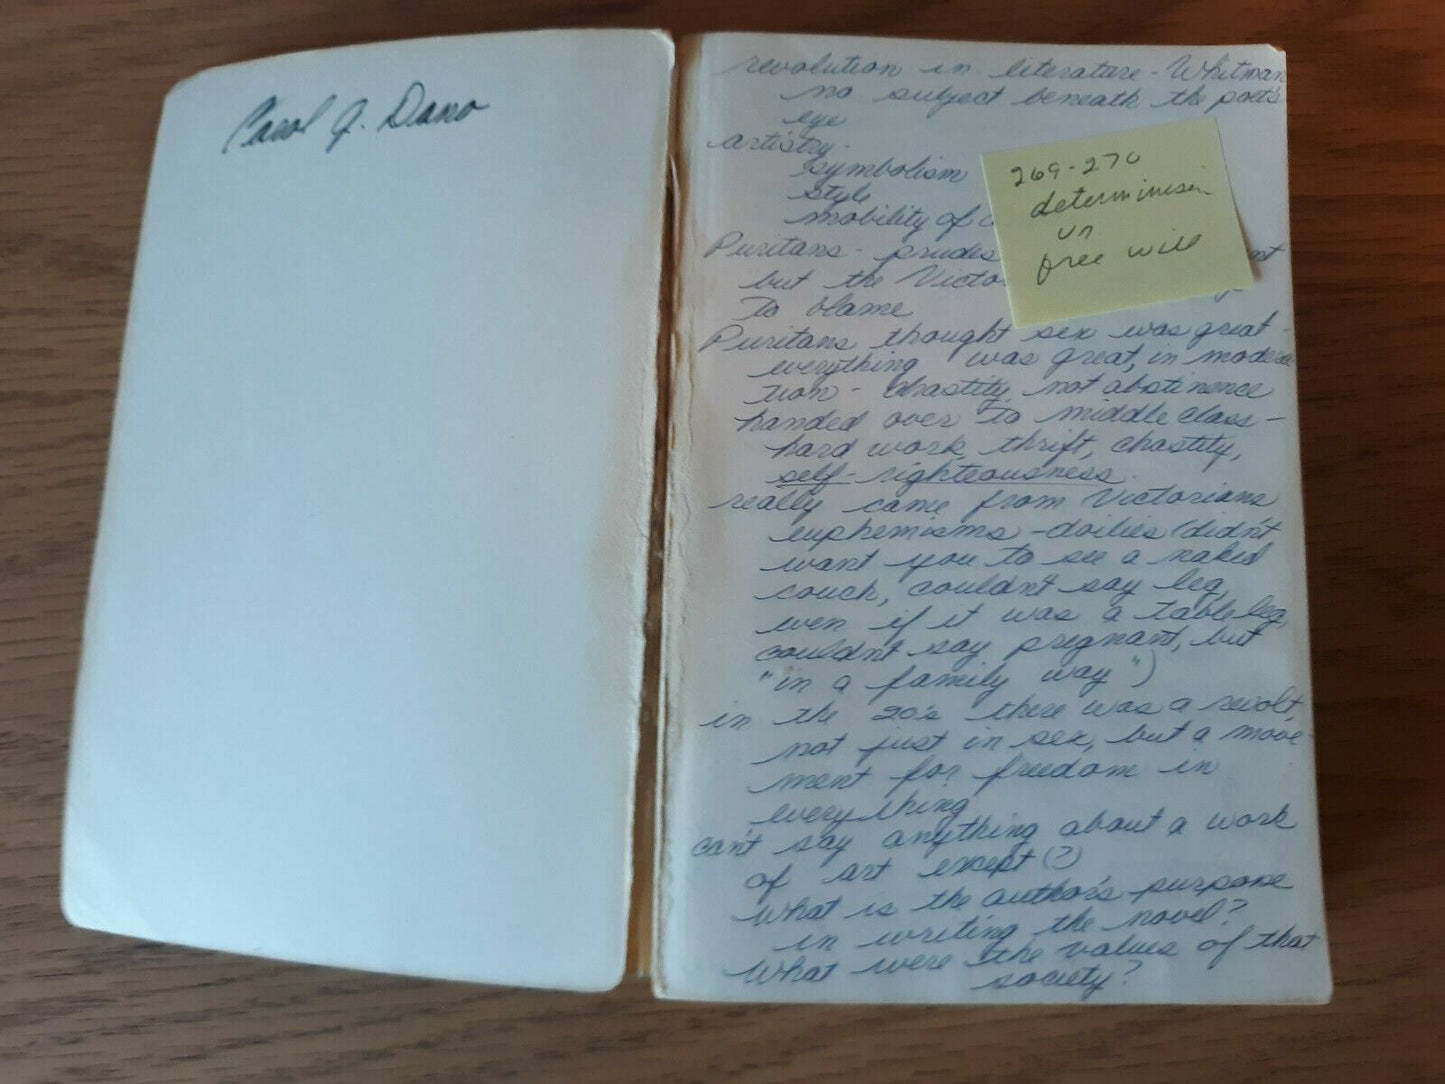 Carol J. Dano
revolution in literature - Whitman
no subject beneath the poet's
eye
artistry -
symbolism
style
mobility of
Puritans - prudes
but the Victo
to blame
Puritans thought sex was great -
everything was great, in modera
tion - chastity, not abstinence
handed over to middle class -
hard work, thrift, chastity,
self-righteousness.
really came from Victorians
euphemisms - doilies (didn't
want you to see a naked
couch, couldn't say leg,
even if it was a table leg,
couldn't say pregnant, but
"in a family way")
in the 20's there was a revolt,
not just in sex, but a move
ment for freedom in
everything
can't say anything about a work
of art except (?)
what is the author's purpose
in writing the novel?
what were the values of that
society?
269-270
determinism
vs
free will